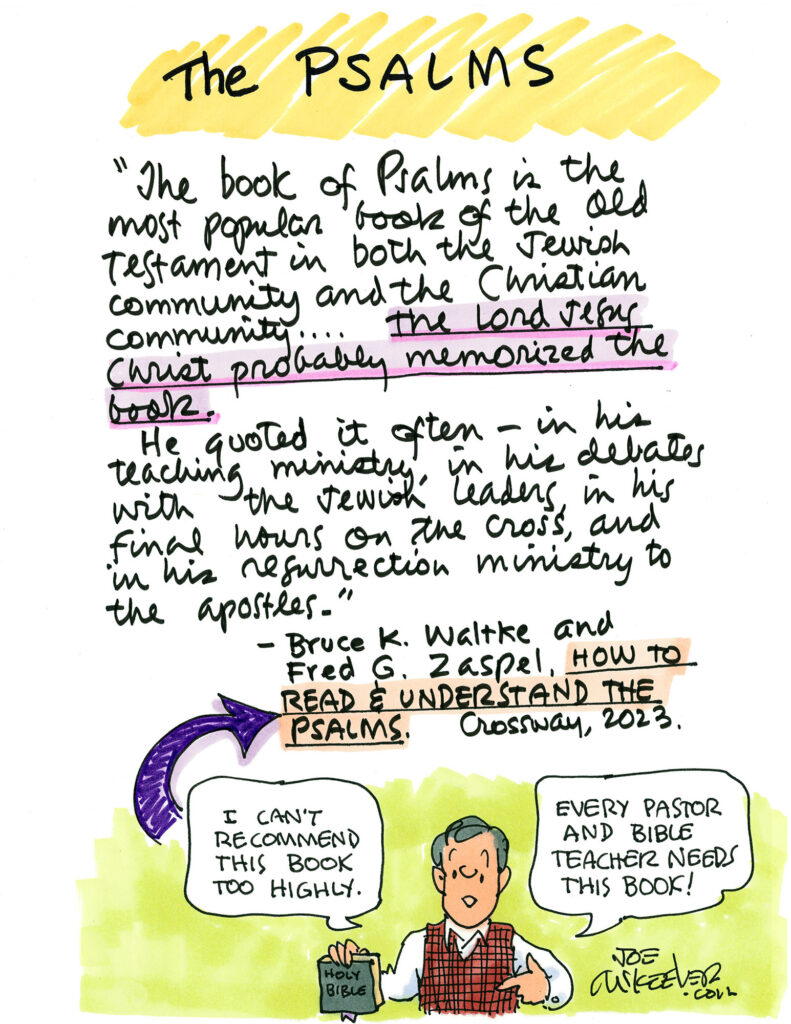 The PSALMS
"The book of Psalms is the
most popular book of the Old
Testament in both the Jewish
community and the Christian
community.... the Lord Jesus
Christ probably memorized the
book.
He quoted it often - in his
teaching ministry, in his debates
with the Jewish leaders, in his
final hours on the cross, and
in his resurrection ministry to
the apostles."
- Bruce K. Waltke and
Fred G. Zaspel, HOW TO
READ & UNDERSTAND THE
PSALMS. Crossway, 2023.
I CAN'T
RECOMMEND
THIS BOOK
TOO HIGHLY.
EVERY PASTOR
AND BIBLE
TEACHER NEEDS
THIS BOOK!
HOLY
BIBLE
JOE
MCKEEVER
.COM